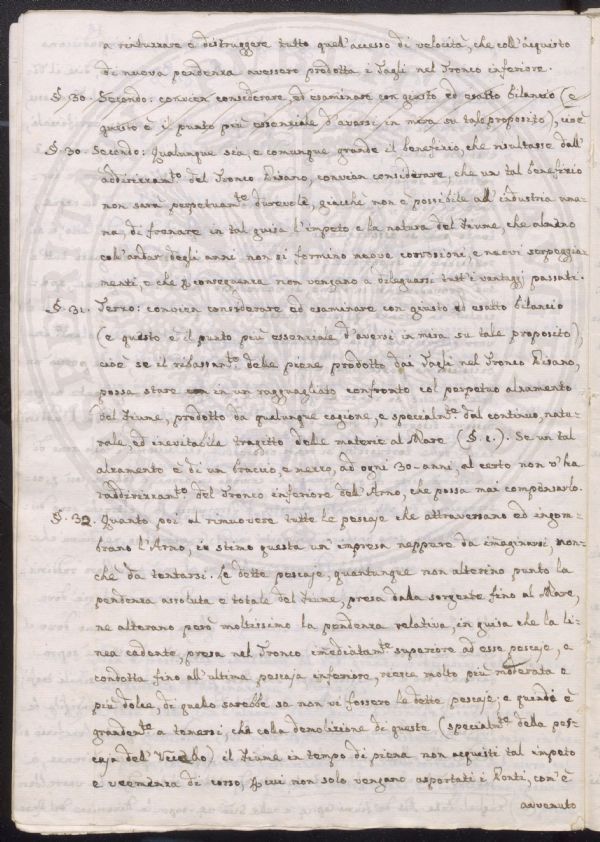 a rintuzzare e distruggere tutto quell'accesso di velocità, che coll'acquisto
di nuova pendenza avessero prodotta i Tagli nel Tronco inferiore.
§. 30. Secondo: convien considerare, ed esaminare con giusto ed esatto bilancio (e
questo è il punto più essenziale d'aversi in mira su tal proposito), cioè
§. 30. Secondo: Qualunque sia, e comunque grande il benefizio, che risultasse dall'
addirizzam.to del Tronco Pisano, convien considerare, che un tal benefizio
non sarà perpetuam.te durevole, giacchè non è possibile all'industria uma-
na, di frenare in tal guisa l'impeto e la natura del Fiume, che almeno
coll'andar degli anni non si formino nuove corrosioni, e nuovi serpeggia-
menti, e che p conseguenza non vengano a dileguarsi tutt'i vantaggj passati.
§. 31. Terzo: convien considerare ed esaminare con giusto ed esatto bilancio
(e questo è il punto più essenziale d'aversi in mira su tale proposito),
cioè se il ribassam.to delle piene prodotto dai Tagli nel Tronco Pisano,
possa stare in un ragguagliato confronto col perpetuo alzamento
del Fiume, prodotto da qualunque cagione, e specialm.te dal continuo, natu-
rale, ed inevitabile tragitto delle materie al Mare (§. 1.). Se un tal
alzamento è di un braccio e mezzo, ad ogni 30 anni, al certo non v'ha
raddirizzam.to del Tronco inferiore dell'Arno, che possa mai compensarlo.
§. 32. Quanto poi al rimuovere tutte le pescaje che attraversano ed ingom-
brano l'Arno, io stimo questa un'impresa neppure da imaginarsi, non-
chè da tentarsi. Le dette pescaje, quantunque non alterino punto la
pendenza assoluta e totale del Fiume, presa dalla sorgente fino al Mare,
ne alterano però moltissimo la pendenza relativa, in guisa che la li-
nea cadente, presa nel Tronco imediatam.te superiore ad esse pescaje, e
condotta fino all'ultima pescaja inferiore, riesce molto più moderata e
più dolce, di quello sarebbe se non vi fossero le dette pescaje; e quindi è
grandem.te a temersi, che colla demolizione di queste (specialm.te della pes-
caja dell'Uccello) il Fiume in tempo di piena non acquisti tal impeto
e veemenza di corso, p cui non solo vengano asportati i Ponti, com'è
avvenuto